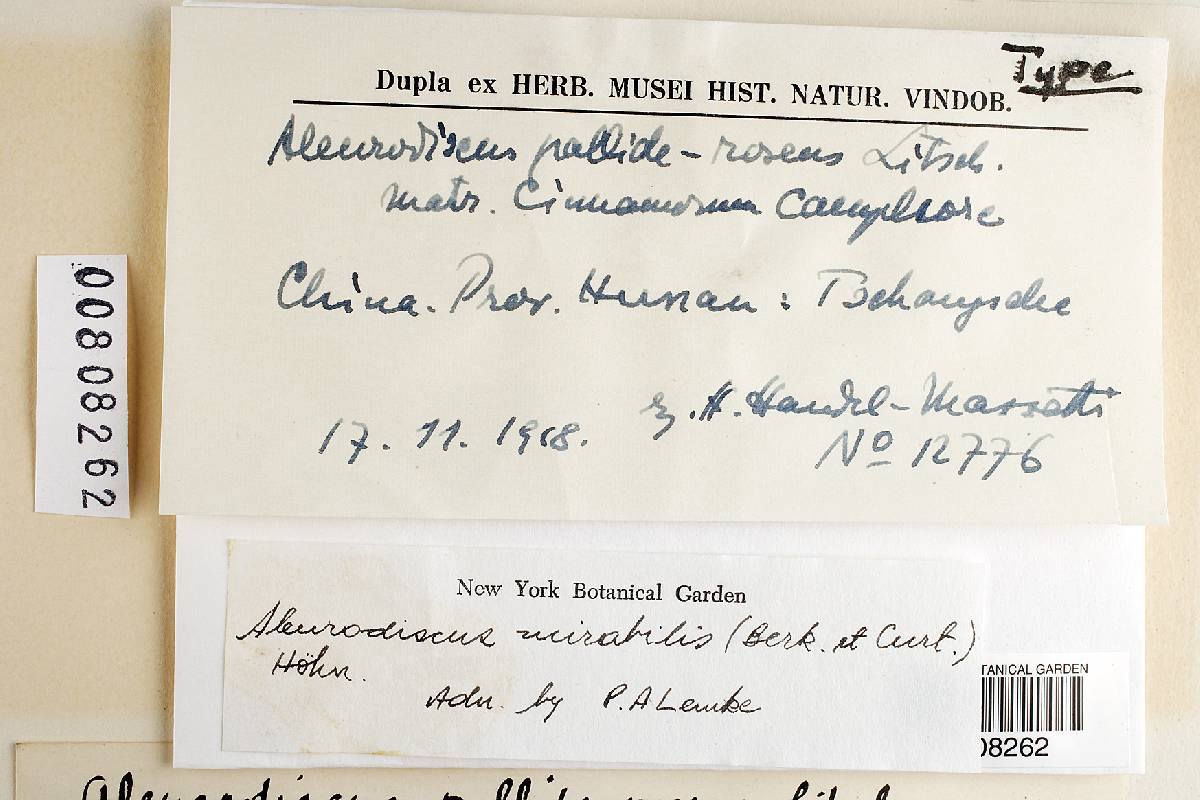 Type
Dupla ex HERB. MUSEI HIST. NATUR. VINDOB.
Aleurodiscus pallide-roseus Litsch.
matr. Cinnamomum Camphore
China. Prov. Hunan: Tschangscha
H. Handel-Mazzetti
17. 11. 1918. No 12776
00808262
New York Botanical Garden
Aleurodiscus mirabilis (Berk. et Curt.)
Höhn.
by P. A Lemke
TANICAL GARDEN
08262
Aleurodiscus